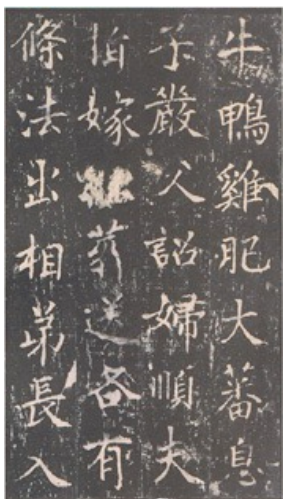 牛鴨雞肥大蕃息
子嚴父詔婦順夫
指嫁葬送各有
條法出相弟長入